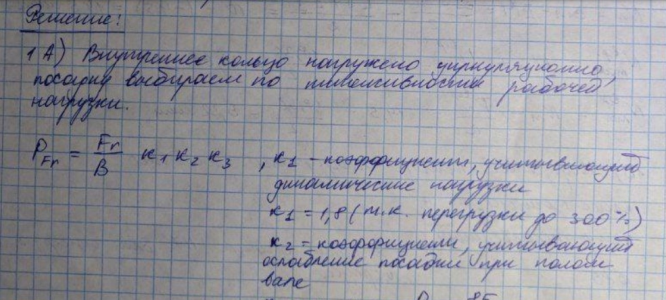 Решение:
1 А) Внутреннее кольцо нагружено циркуляционно,
посадки выбираем по интенсивности рабочей
нагрузки.
P_Fr = Fr/B к1 к2 к3 , к1 - коэффициент, учитывающий
динамические нагрузки
к1 = 1,8 (т.к. перегрузки до 300%)
к2 = коэффициент, учитывающий
ослабление посадки при полом
вале